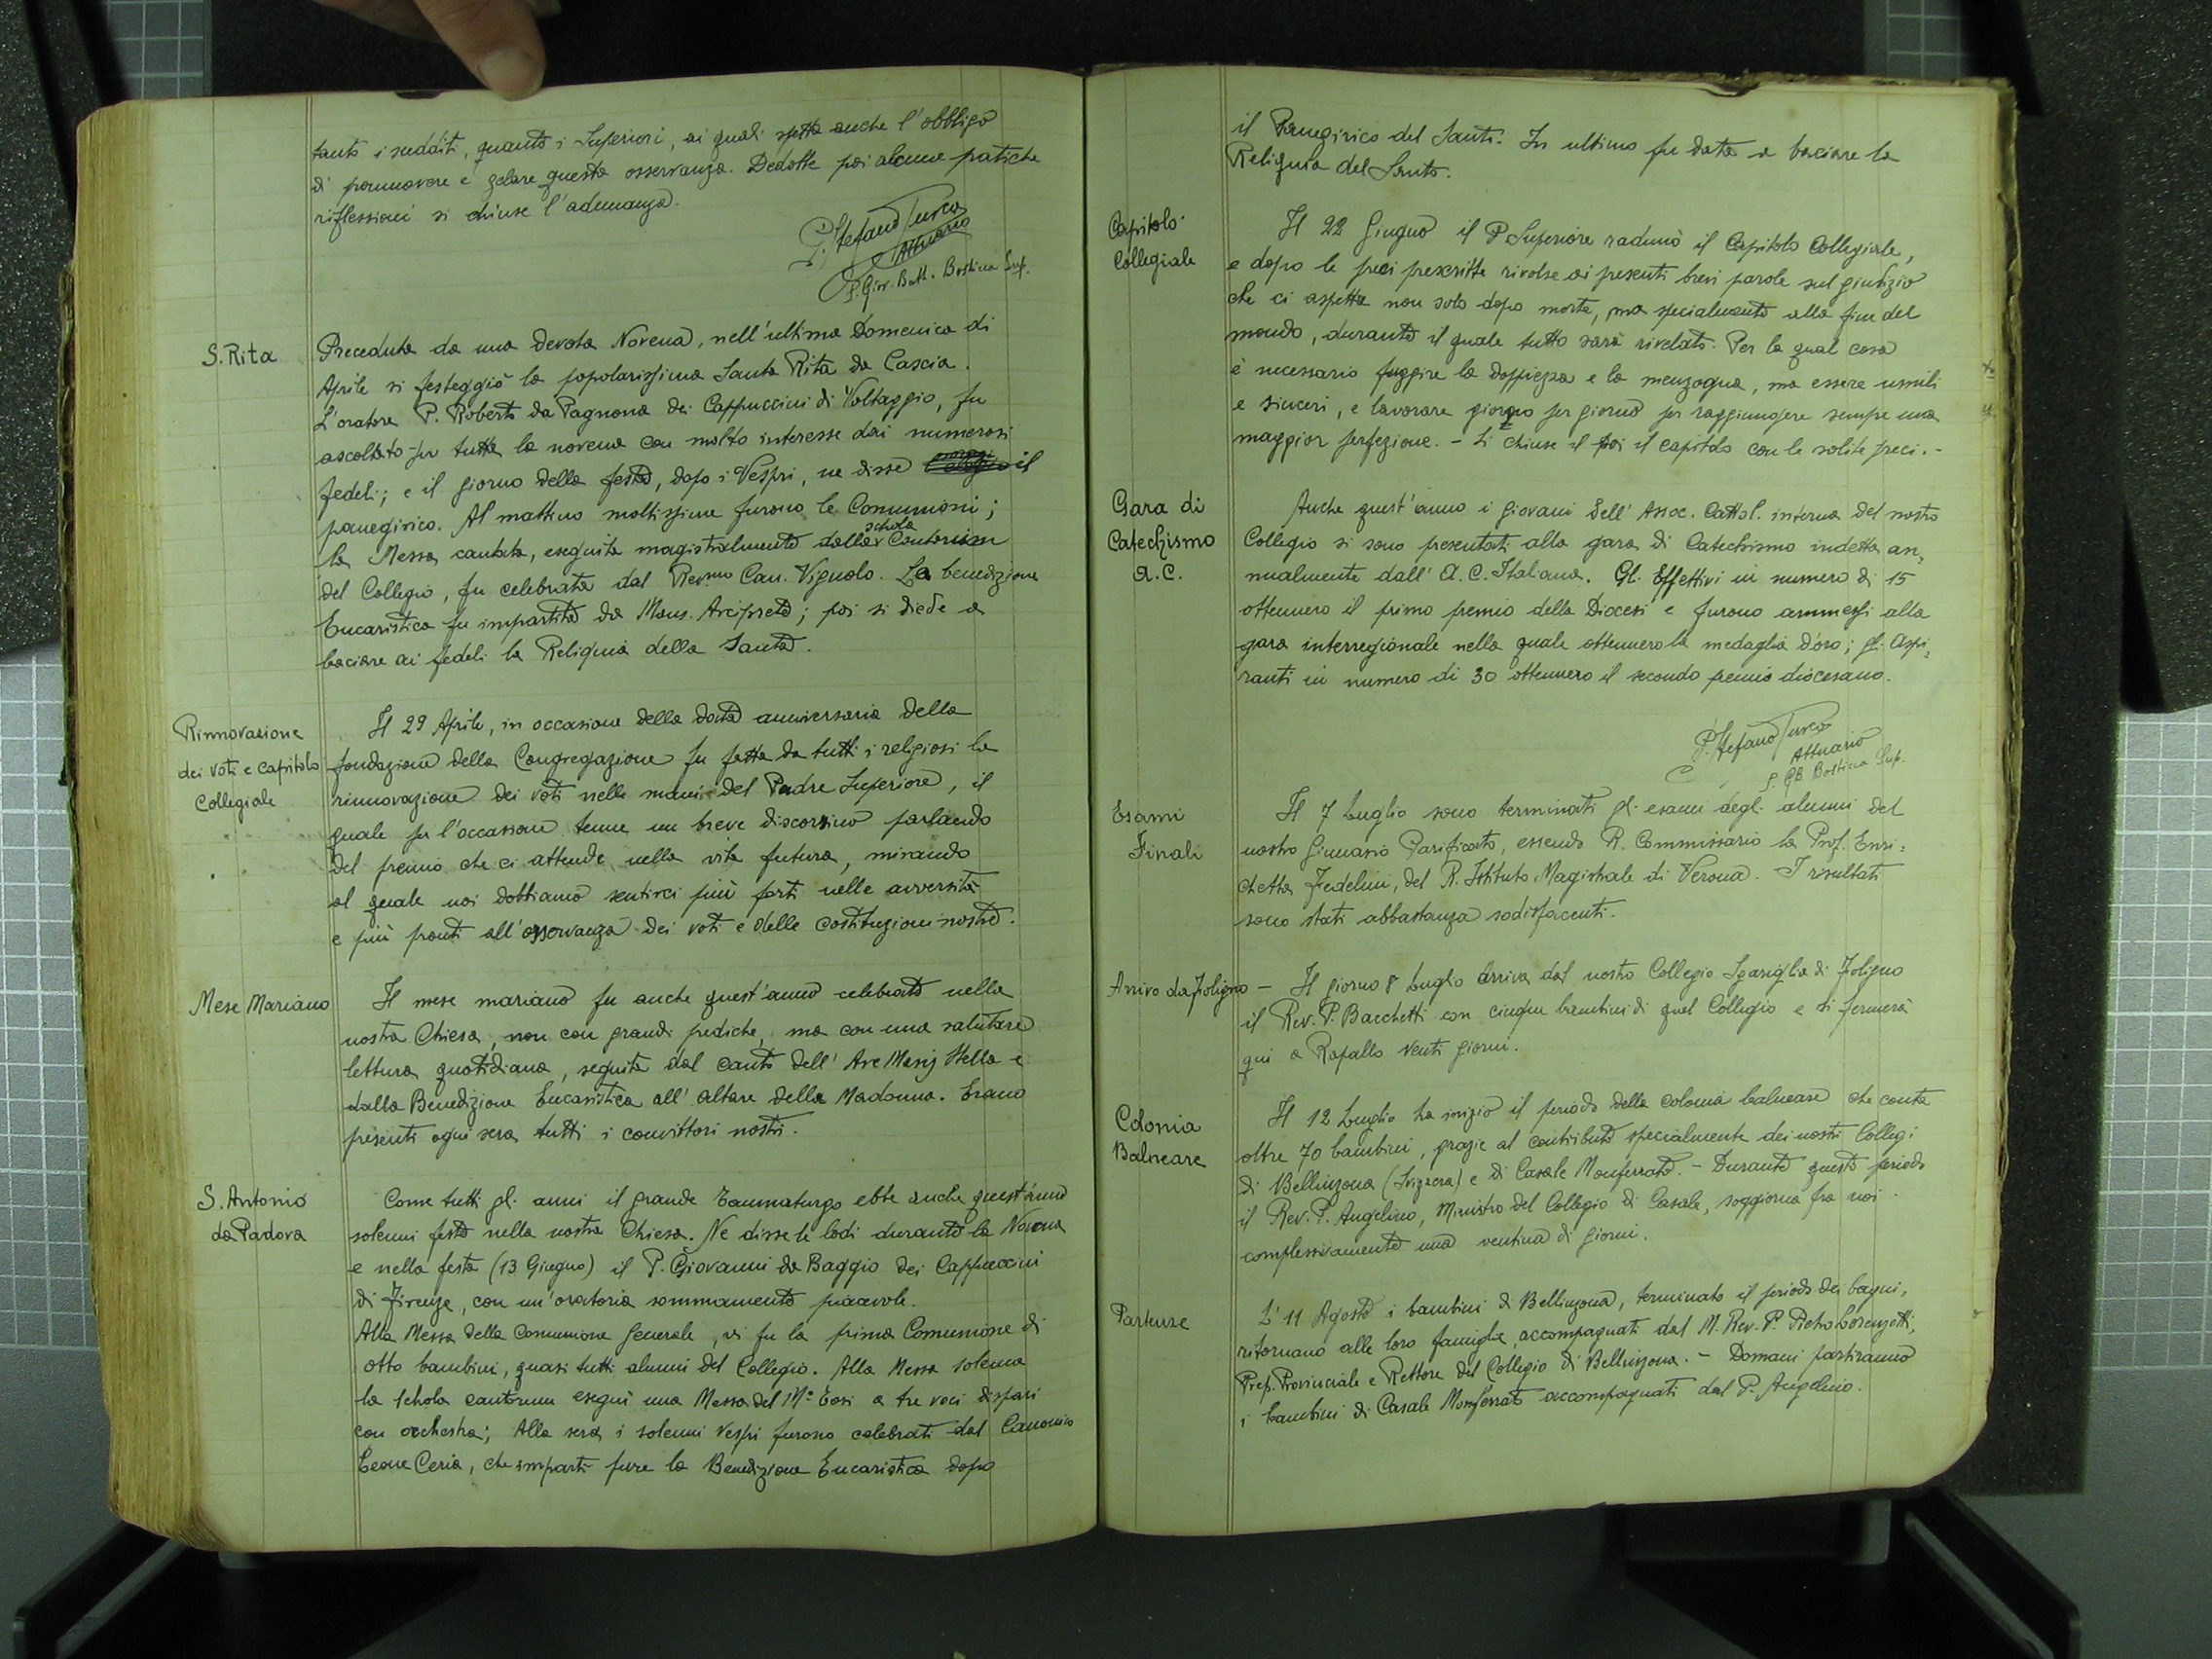 tanto i sudditi, quanto i Superiori, ai quali spetta anche l'obbligo
di promuovere e zelare questa osservanza. Dedotte poi alcune pratiche
riflessioni si chiuse l'adunanza.
P. Stefano Turco
Attuario
P. Giov. Batt. Bostica Sup.
S. Rita
Preceduta da una devota Novena, nell'ultima Domenica di
Aprile si festeggiò la popolarissima Santa Rita da Cascia.
L'oratore P. Roberto da Pagnona dei Cappuccini di Voltaggio, fu
ascoltato per tutta la novena con molto interesse dai numerosi
fedeli; e il giorno della festa, dopo i Vespri, ne disse il
panegirico. Al mattino moltissime furono le Comunioni;
la Messa cantata, eseguita magistralmente dalla schola Cantorum
del Collegio, fu celebrata dal Rev.mo Can. Vignolo. La benedizione
Eucaristica fu impartita da Mons. Arciprete; poi si diede a
baciare ai fedeli la Reliquia della Santa.
Rinnovazione
dei voti e capitolo
Collegiale
Il 29 Aprile, in occasione della data anniversaria della
fondazione della Congregazione fu fatta da tutti i religiosi la
rinnovazione dei voti nelle mani del Padre Superiore, il
quale per l'occasione tenne un breve discorsino parlando
del premio che ci attende nella vita futura, mirando
al quale noi dobbiamo sentirci più forti nelle avversità
e più pronti all'osservanza dei voti e delle costituzioni nostre.
Mese Mariano
Il mese mariano fu anche quest'anno celebrato nella
nostra Chiesa, non con grandi prediche, ma con una salutare
lettura quotidiana, seguita dal canto dell'Ave Maris Stella e
dalla Benedizione Eucaristica all'altare della Madonna. Erano
presenti ogni sera tutti i convittori nostri.
S. Antonio
da Padova
Come tutti gli anni il grande Taumaturgo ebbe anche quest'anno
solenni feste nella nostra Chiesa. Ne disse le lodi durante la Novena
e nella festa (13 Giugno) il P. Giovanni da Baggio dei Cappuccini
di Firenze, con un'oratoria sommamente piacevole.
Alla Messa della Comunione Generale, vi fu la prima Comunione di
otto bambini, quasi tutti alunni del Collegio. Alla Messa solenne
la schola cantorum eseguì una Messa del M.° Eosi a tre voci dispari
con orchestra; Alla sera i solenni Vespri furono celebrati dal Canonico
Leone Ceria, che impartì pure la Benedizione Eucaristica dopo
il Panegirico del Santo. In ultimo fu data a baciare la
Reliquia del Santo.
Capitolo
Collegiale
Il 22 Giugno il P. Superiore radunò il Capitolo Collegiale,
e dopo le preci prescritte rivolse ai presenti brevi parole sul giudizio
che ci aspetta non solo dopo morte, ma specialmente alla fine del
mondo, durante il quale tutto sarà rivelato. Per la qual cosa
è necessario fuggire la doppiezza e la menzogna, ma essere umili
e sinceri, e lavorare giorno per giorno per raggiungere sempre una
maggior perfezione. - Si chiuse il poi il capitolo con le solite preci. -
Gara di
Catechismo
A.C.
Anche quest'anno i giovani dell'Assoc. Cattol. interna del nostro
Collegio si sono presentati alla gara di Catechismo indetta an-
nualmente dall'A.C. Italiana. Gli Effettivi in numero di 15
ottennero il primo premio della Diocesi e furono ammessi alla
gara interregionale nella quale ottennero la medaglia d'oro; gli Aspi-
ranti in numero di 30 ottennero il secondo premio diocesano.
P. Stefano Turco
Attuario
P. GB Bostica Sup.
Esami
Finali
Il 7 Luglio sono terminati gli esami degli alunni del
nostro Ginnasio Parificato, essendo R. Commissario la Prof. Enri-
chetta Fedelini, del R. Istituto Magistrale di Verona. I risultati
sono stati abbastanza sodisfacenti.
Arrivo da Foligno
- Il giorno 8 Luglio arriva dal nostro Collegio Sgariglia di Foligno
il Rev. P. Bacchetti con cinque bambini di quel Collegio e si fermerà
qui a Rapallo venti giorni.
Colonia
Balneare
Il 12 Luglio ha inizio il periodo della colonia balneare che conta
oltre 70 bambini, grazie al contributo specialmente dei nostri Collegi
di Bellinzona (Svizzera) e di Casale Monferrato. - Durante questo periodo
il Rev. P. Angelino, Ministro del Collegio di Casale, soggiorna fra noi
complessivamente una ventina di giorni.
Partenze
L'11 Agosto i bambini di Bellinzona, terminato il periodo dei bagni,
ritornano alle loro famiglie, accompagnati dal M. Rev. P. Pietro Lorenzetti,
Prep. Provinciale e Rettore del Collegio di Bellinzona. - Domani partiranno
i bambini di Casale Monferrato accompagnati dal P. Angelino.